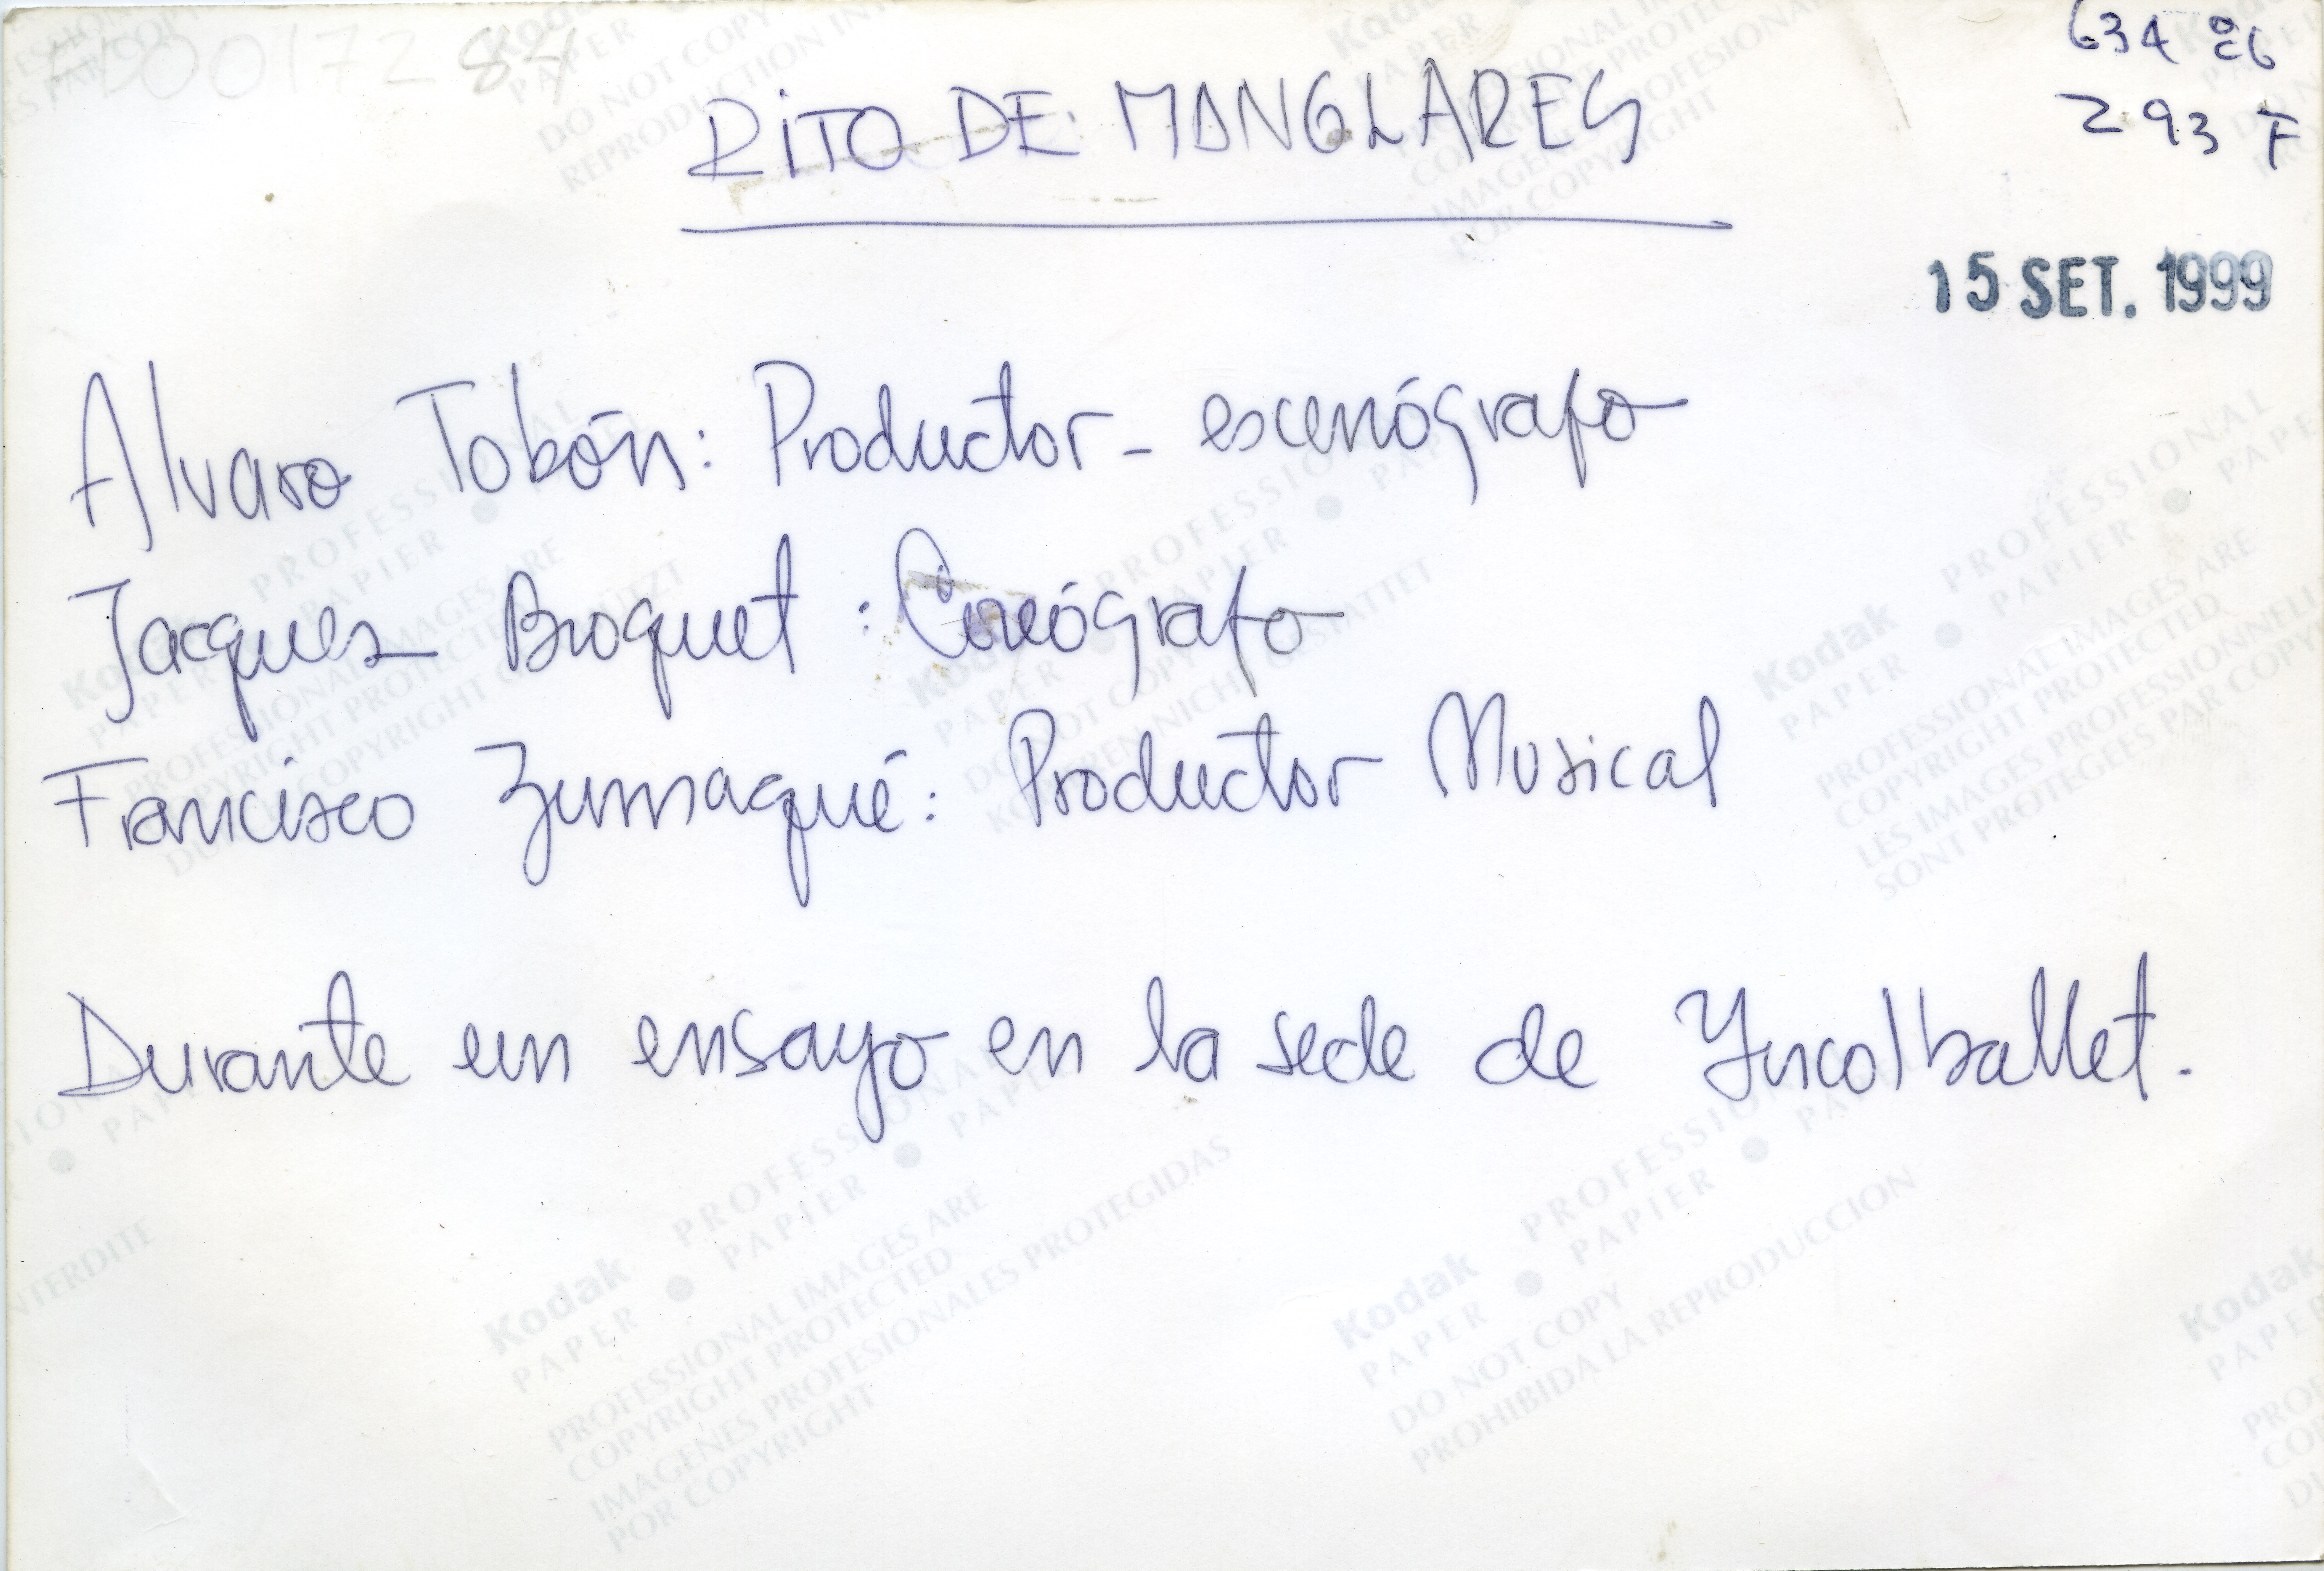 84
RITO DE MANGLARES
293 F
15 SET. 1999
Alvaro Tobón: Productor - escenógrafo
Jacques Broquet : Coreógrafo
Francisco Zumaqué: Productor Musical
Durante un ensayo en la sede de Incolballet.
Kodak PROFESSIONAL
PAPER PAPIER
PROFESSIONAL IMAGES ARE
COPYRIGHT PROTECTED
LES IMAGES PROFESSIONNELLES
SONT PROTEGES PAR COPYRIGHT
Kodak PROFESSIONAL
PAPER PAPIER
PROFESSIONAL IMAGES ARE
COPYRIGHT PROTECTED
IMAGENES PROFESIONALES PROTEGIDAS
POR COPYRIGHT
Kodak PROFESSIONAL
PAPER PAPIER
DO NOT COPY
PROHIBIDA LA REPRODUCCION